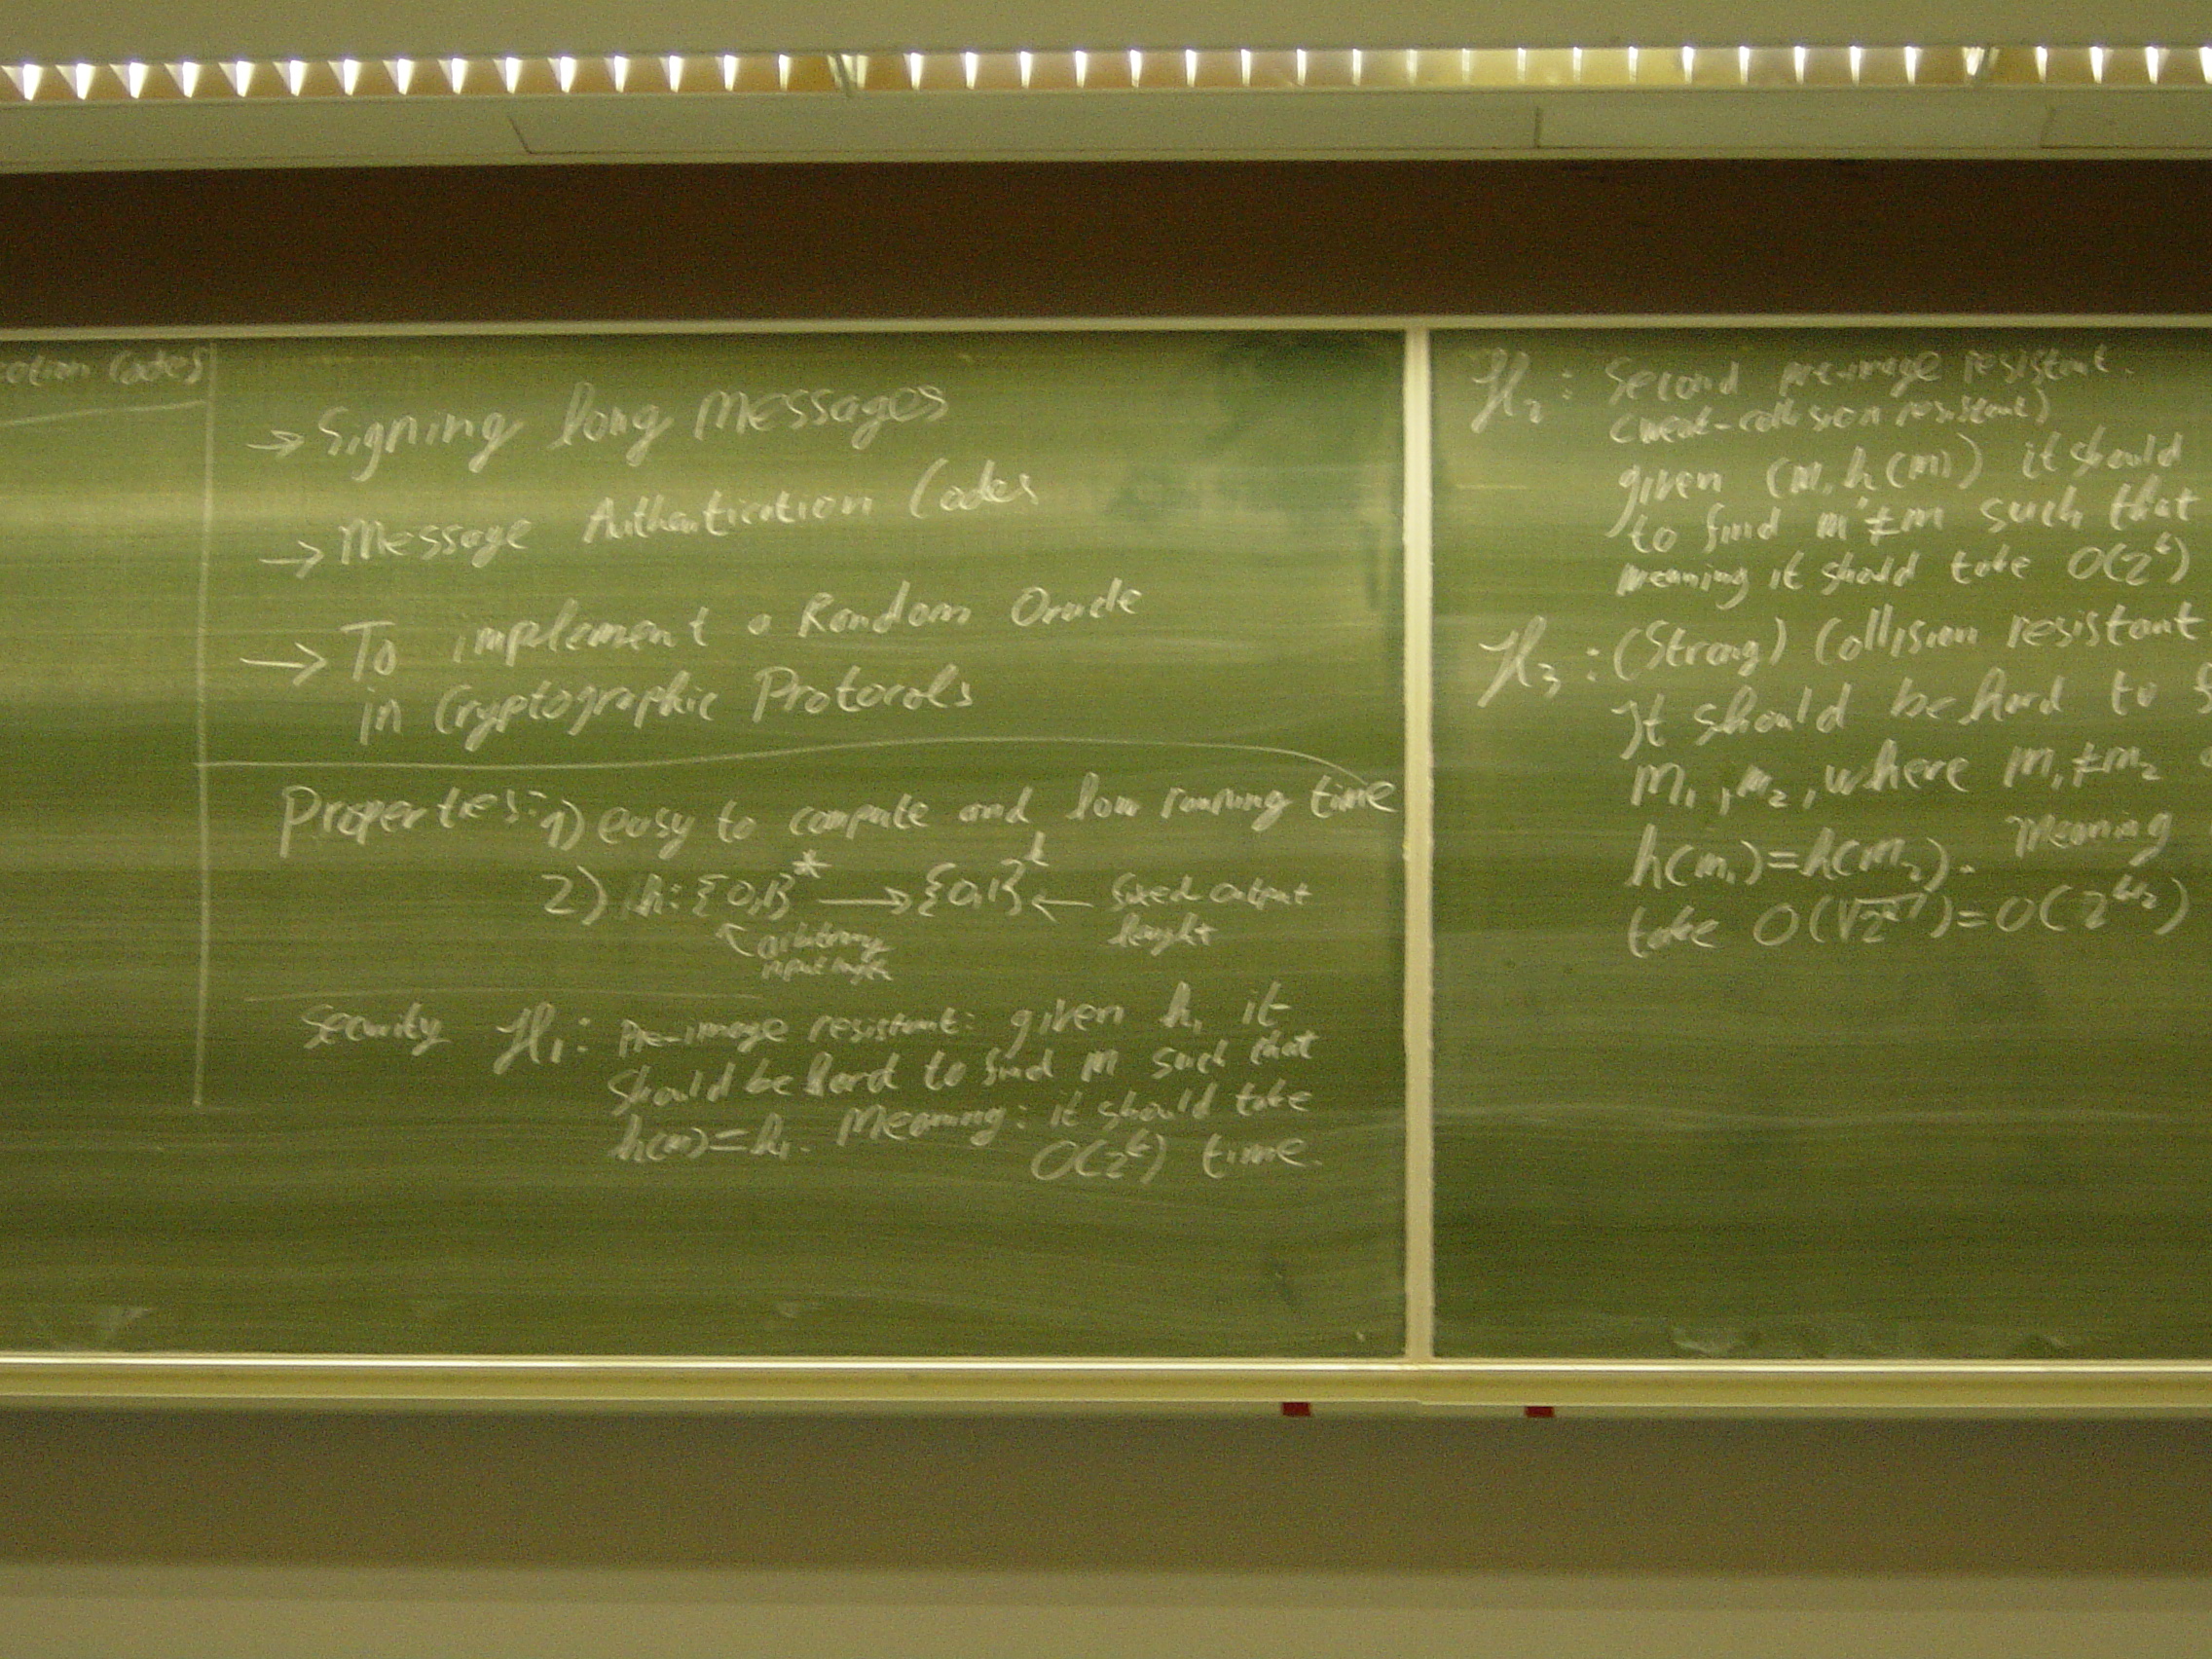 cation Codes
→ Signing long Messages
→ Message Authentication Codes
→ To implement a Random Oracle
in Cryptographic Protocols
Properties: 1) easy to compute and low running time
2) h: {0,1}* → {0,1}^k ← fixed output
lenght
arbitrary
input length
Security H₁: Pre-image resistant: given h₁ it
should be hard to find m such that
h(m)=h₁. Meaning: it should take
O(2^k) time.
H₂: Second pre-image resistant.
(weak-collision resistant)
given (m, h(m)) it should
to find m'≠m such that
meaning it should take O(2^k)
H₃: (Strong) Collision resistant
It should be hard to
m₁, m₂, where m₁≠m₂
h(m₁)=h(m₂). Meaning
take O(√2^k)=O(2^k/2)